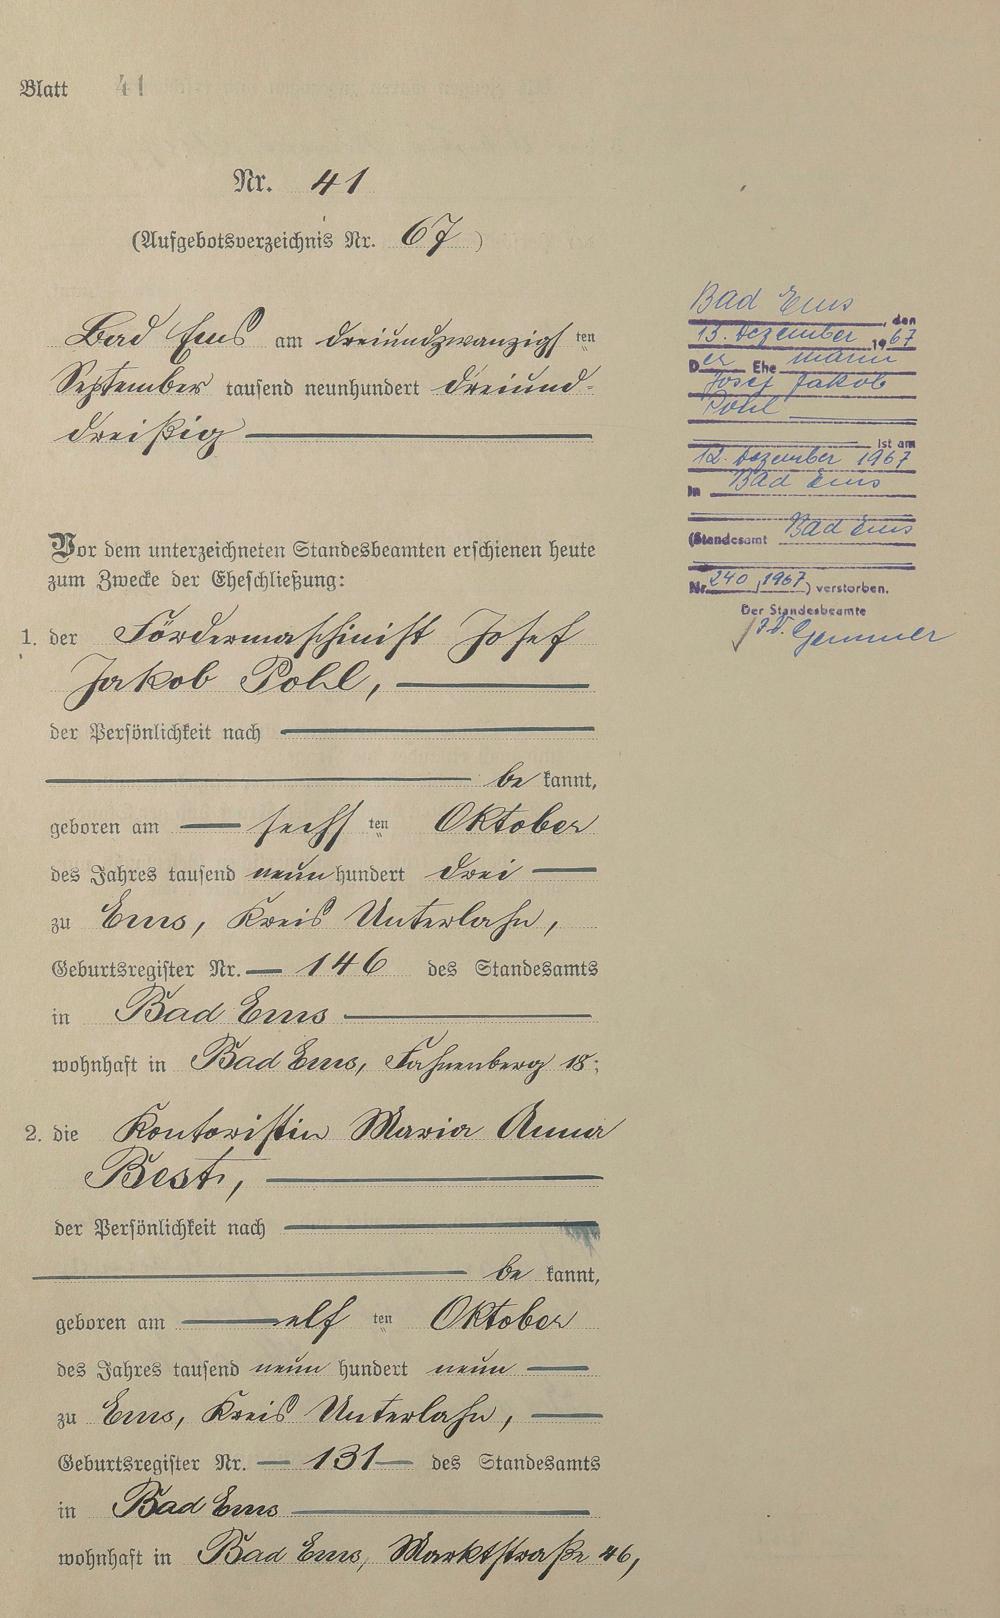 Blatt 41
Nr. 41
(Aufgebotsverzeichnis Nr. 67)
Bad Ems am dreiundzwanzigsten
September tausend neunhundert dreiund-
dreißig
Vor dem unterzeichneten Standesbeamten erschienen heute
zum Zwecke der Eheschließung:
1. der Fördermaschinist Josef
Jakob Pohl,
der Persönlichkeit nach
be kannt,
geboren am sechsten Oktober
des Jahres tausend neun hundert drei
zu Ems, Kreis Unterlahn,
Geburtsregister Nr. 146 des Standesamts
in Bad Ems
wohnhaft in Bad Ems, Fahnenberg 18;
2. die Kontoristin Maria Anna
Best,
der Persönlichkeit nach
be kannt,
geboren am elf ten Oktober
des Jahres tausend neun hundert neun
zu Ems, Kreis Unterlahn,
Geburtsregister Nr. 131 des Standesamts
in Bad Ems
wohnhaft in Bad Ems, Marktstraße 46,
Bad Ems
, den
13. Dezember 1967
Der Ehe mann
Josef Jakob
Pohl
ist am
12. Dezember 1967
in Bad Ems
(Standesamt Bad Ems
Nr. 240, 1967) verstorben.
Der Standesbeamte